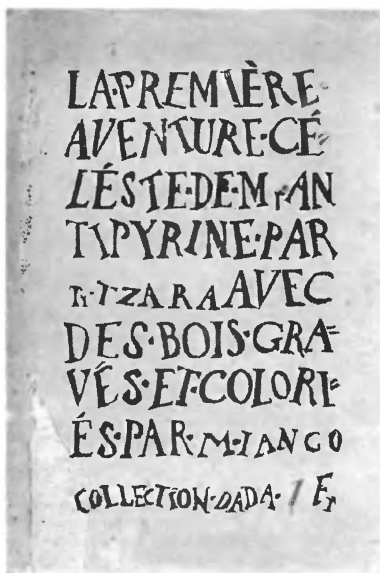 LA·PREMIÈRE·
AVENTURE·CÉ
LÉSTE·DE·Mr·AN
TIPYRINE·PAR
Tr·TZARA AVEC
DES·BOIS·GRA=
VÉS·ET·COLORI=
ÉS·PAR·M·IANCO
COLLECTION·DADA·